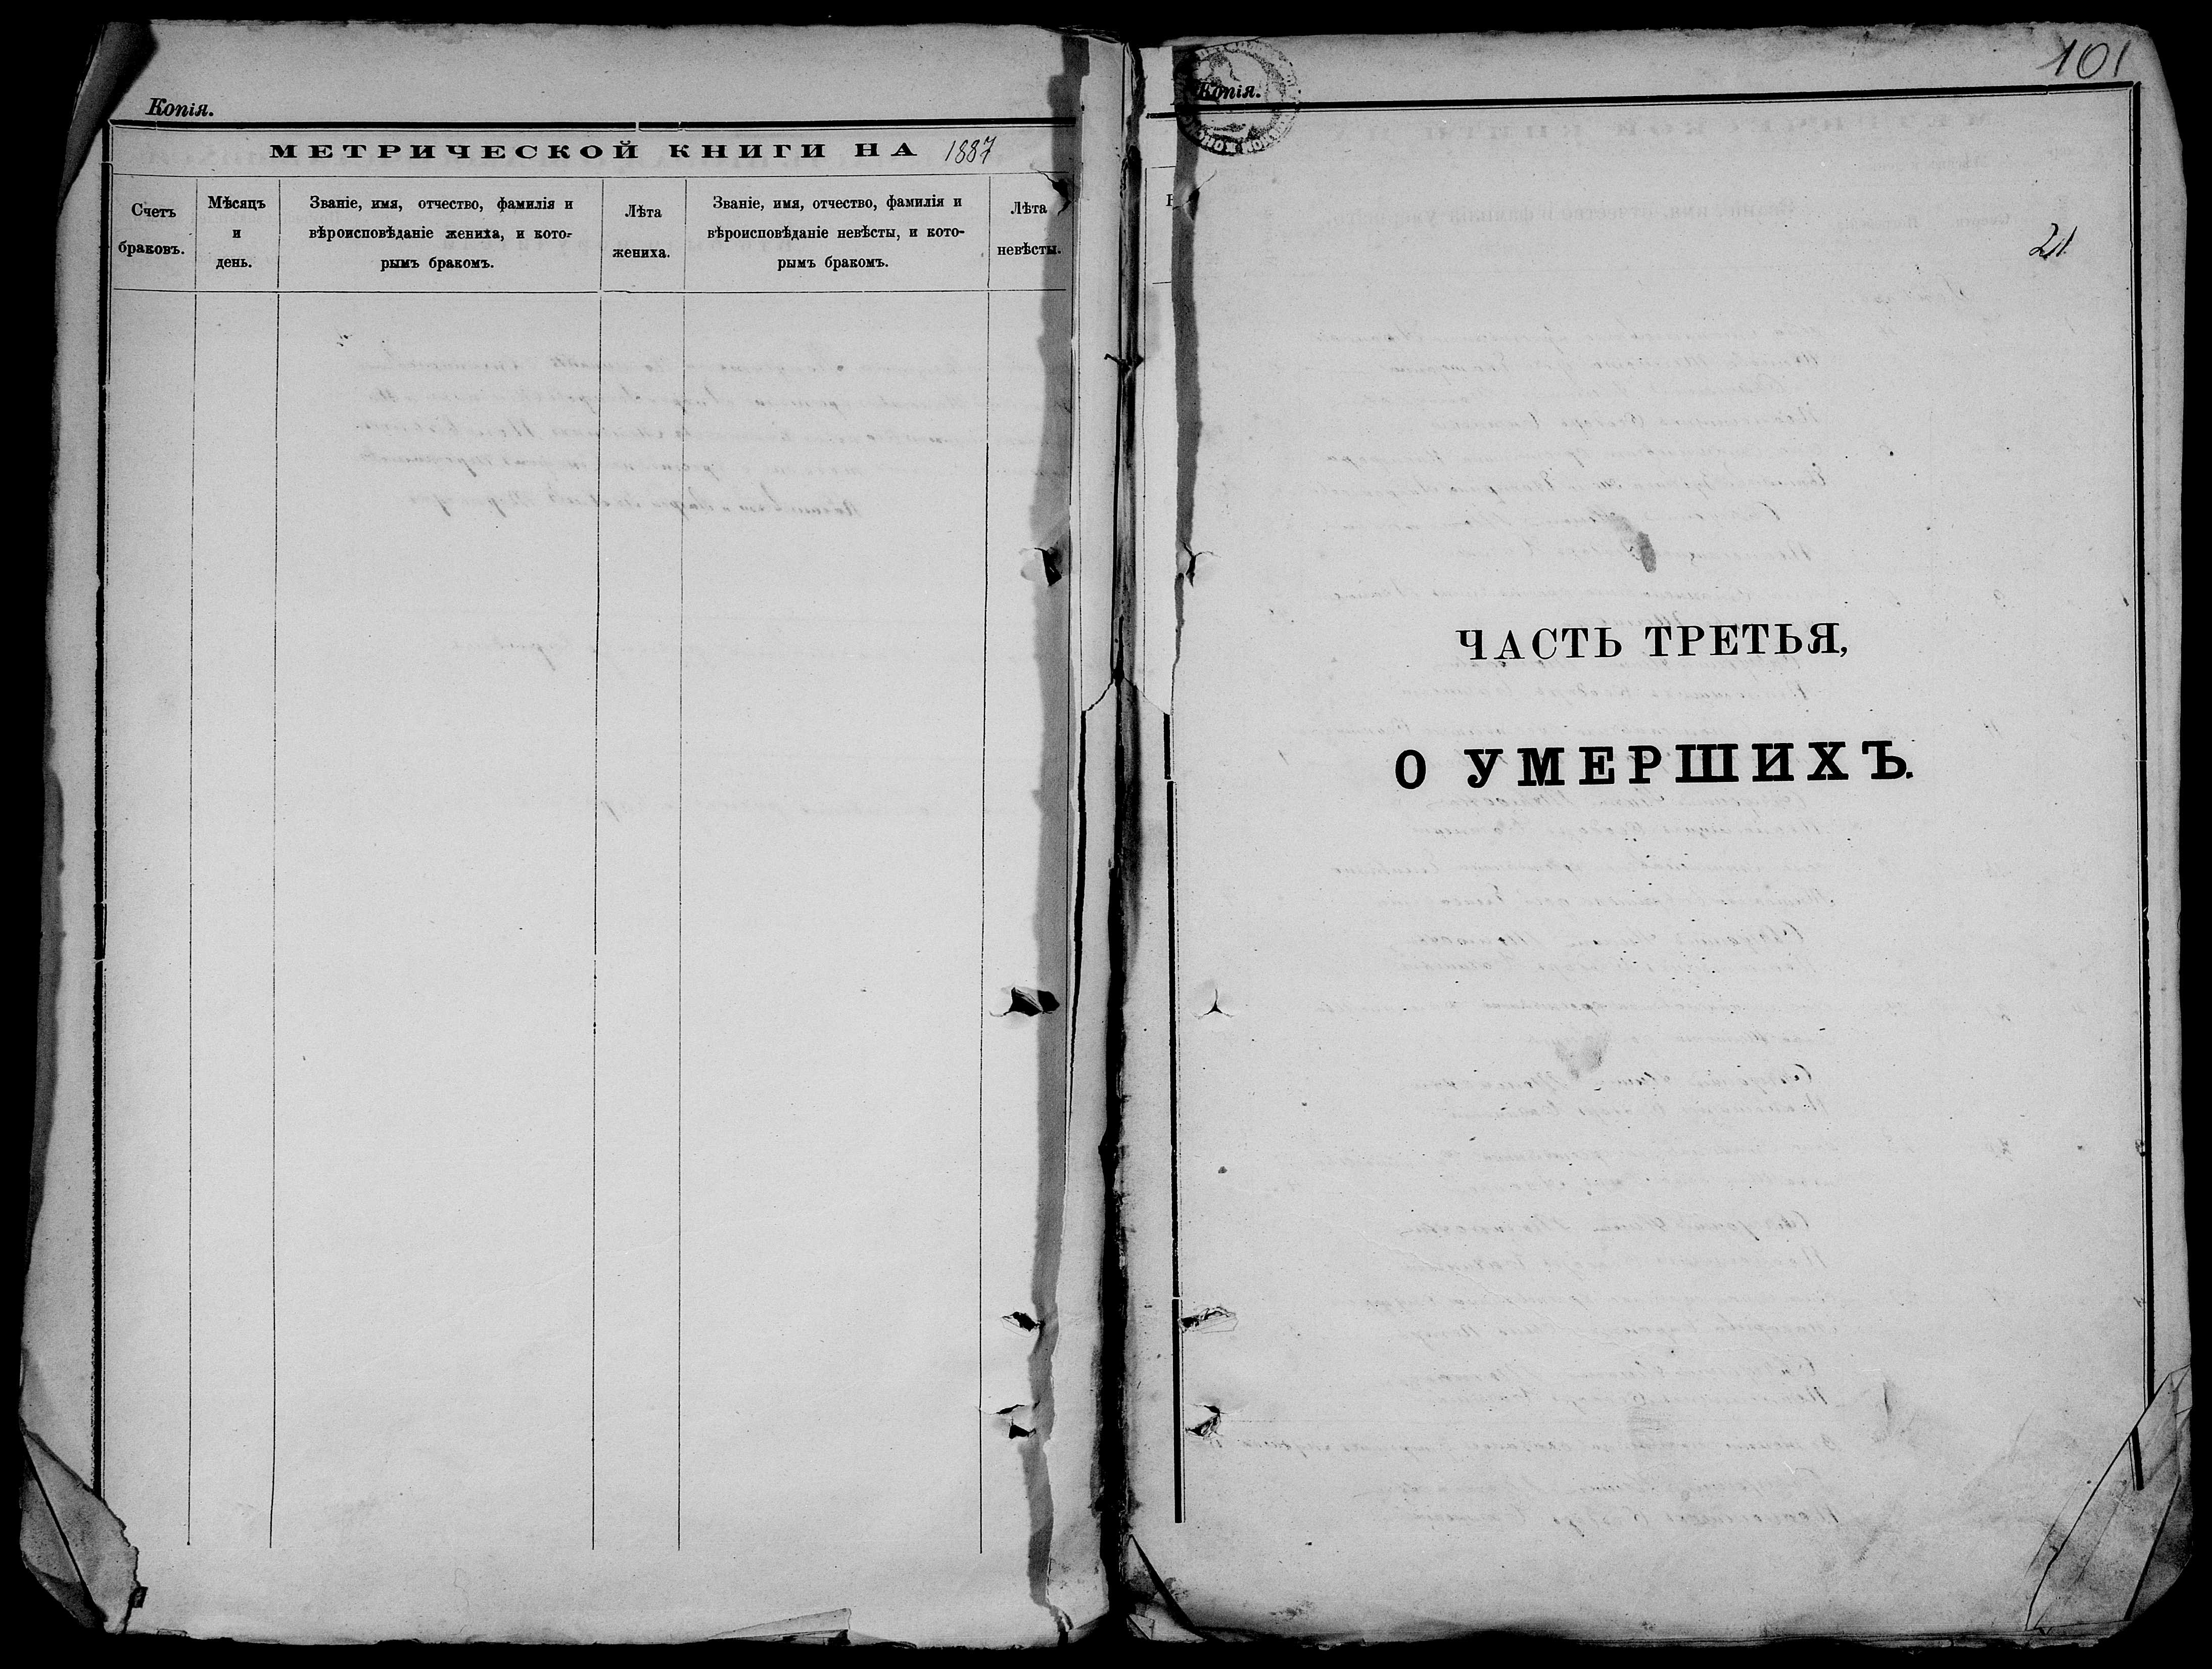 Копія.
МЕТРИЧЕСКОЙ КНИГИ НА 1887
Счетъ браковъ.
Мѣсяцъ и день.
Званіе, имя, отчество, фамилія и
вѣроисповѣданіе жениха, и кото-
рымъ бракомъ.
Лѣта жениха.
Званіе, имя, отчество, фамилія и
вѣроисповѣданіе невѣсты, и кото-
рымъ бракомъ.
Лѣта невѣсты.
Копія.
101
21
ЧАСТЬ ТРЕТЬЯ,
О УМЕРШИХЪ.